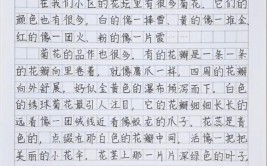 在我们小区的花坛里有很多菊花。它们的颜
色也有很多，白的像一捧雪，黄的像一堆金，
红的像一团火，粉的像一片霞
菊花的品种也很多，有的花瓣是一条一条
的花瓣向里卷着，就像鹰爪一样，四周的花瓣
向外舒展，奶似金黄色的瀑布倾泻而下。白
色的绣球菊花最引人注目，它的花瓣细细长长的
远看像一团绒线近看像蚊龙的爪子，花蕊是青
色的，点缀在那白色的花瓣中间，活像一把把
美丽的小花伞，花茎上那一片片深绿色的叶子，